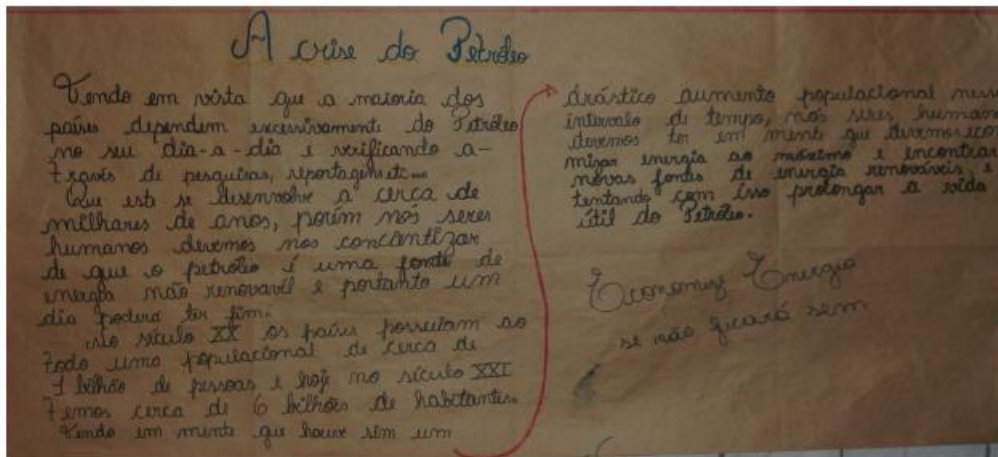 A crise do Petróleo
Tendo em vista que a maioria dos
países dependem excessivamente do Petróleo
no seu dia-a-dia e verificando a-
través de pesquisas, reportagens etc...
Que este se desenvolve a cerca de
milhares de anos, porém nós seres
humanos devemos nos concientizar
de que o petróleo é uma fonte de
energia não renovavél e portanto um
dia poderá ter fim.
No século XX os países possuiam ao
todo uma populacional de cerca de
1 bilhão de pessoas e hoje no século XXI
temos cerca de 6 bilhões de habitantes.
Tendo em mente que houve sim um
drástico aumento populacional nesse
intervalo de tempo, nós seres human
devemos ter em mente que devemos eco
mizar energia ao máximo e encontrar
novas fontes de energia renováveis, e
tentando com isso prolongar a vida
útil do Petróleo.
Economize Energia
se não ficará sem